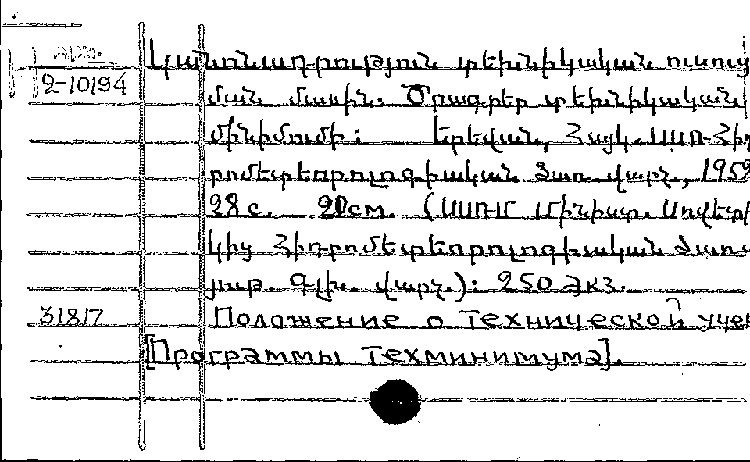 2-10194
Կանոնադրություն տեխնիկական ուսուց
ման մասին. Ծրագրեր տեխնիկական
մինիմումի: Երեվան, Հայկ. ՍՍՌ Հիդ
րոմետեորոլոգիական ծառ. վարչ., 1959
28 с. 20 см. (ՍՍՌՄ Մինիստ. Սովետ
կից Հիդրոմետեորոլոգիական ծառ
յութ. Գլխ. վարչ.): 250 экз.
31817 Положение о технической учеб
[Программы техминимума].